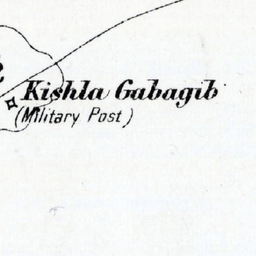 Kishla Gabagib
(Military Post)